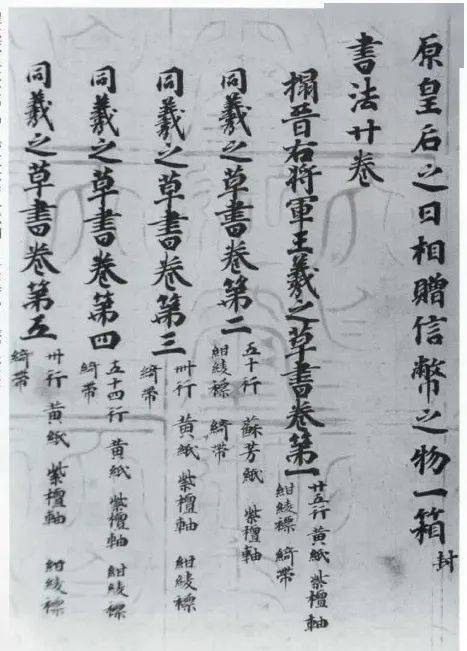 原皇后之日相贈信幣之物一箱 封
書法廿卷
搨晉右将軍王羲之草書卷第一
廿五行 黄紙 紫檀軸
紺綾褾 綺帶
同羲之草書卷第二
五十行 蘇芳紙 紫檀軸
紺綾褾 綺帶
同羲之草書卷第三
卅行 黄紙 紫檀軸 紺綾褾
綺帶
同羲之草書卷第四
五十四行 黄紙 紫檀軸 紺綾褾
綺帶
同羲之草書卷第五
卅行 黄紙 紫檀軸 紺綾褾
綺帶